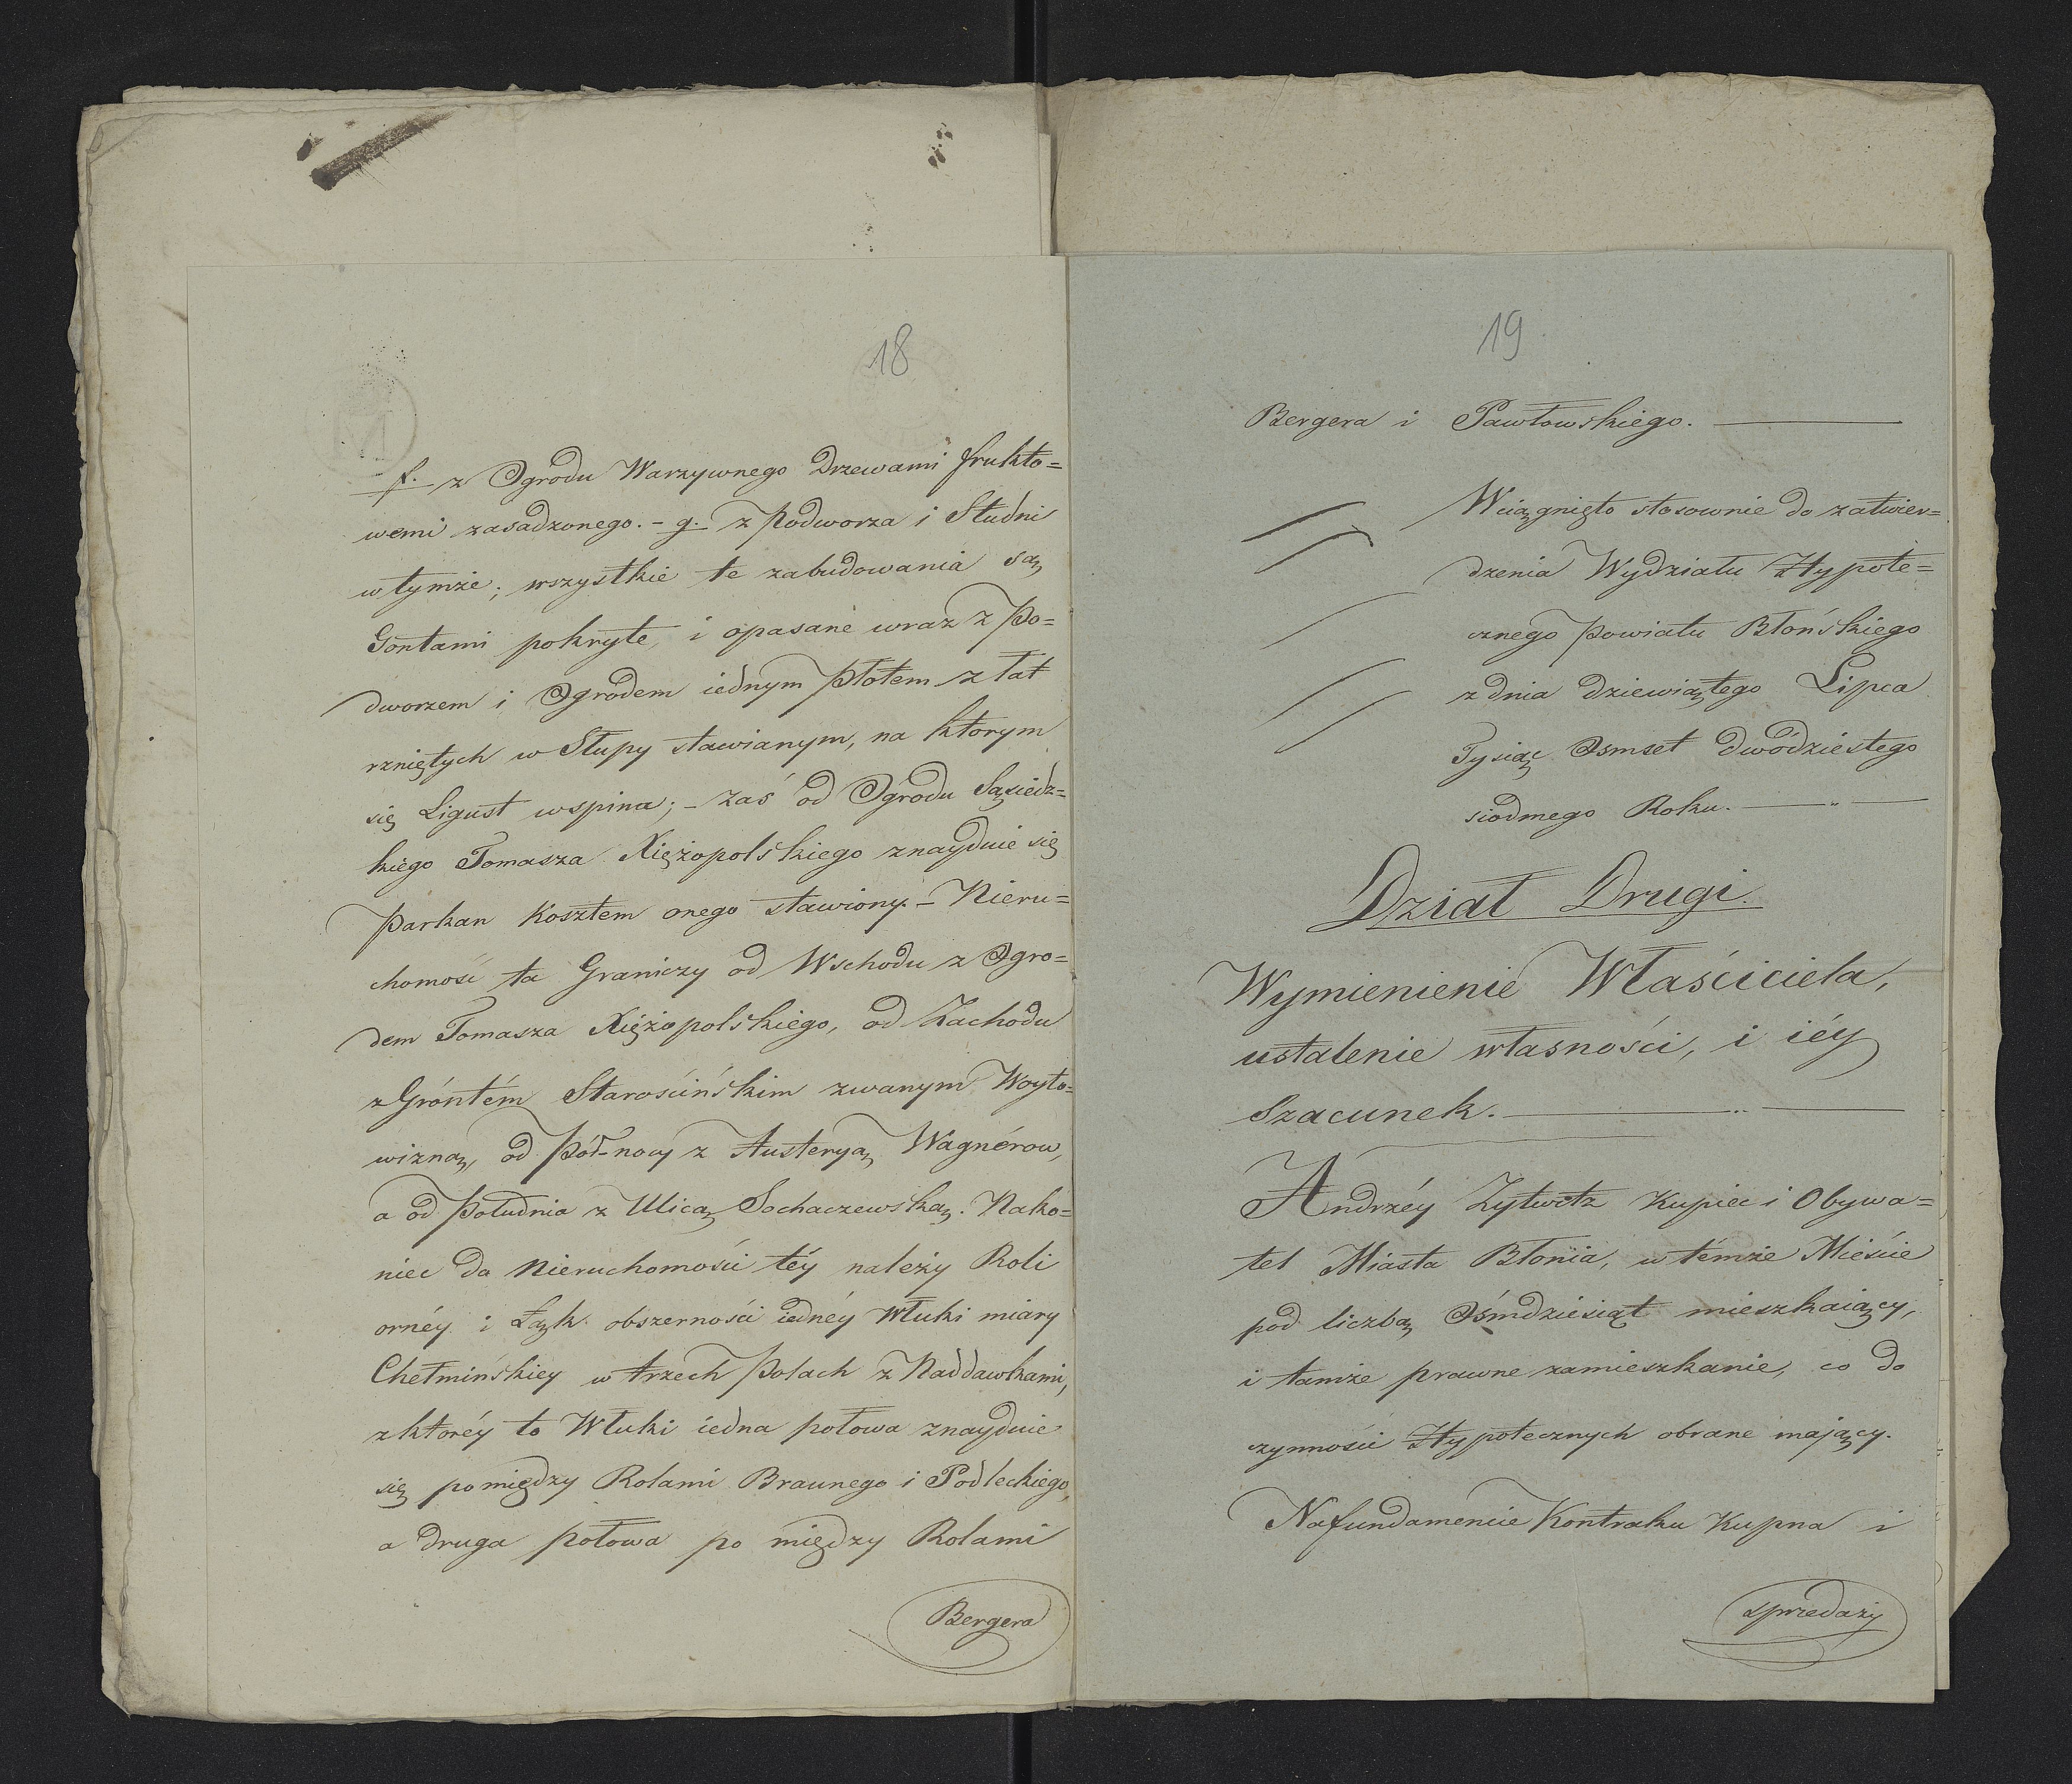 18
f. z Ogrodu Warzywnego Drzewami frukto=
wemi zasadzonego. - g. z Podworza i Studni
w tymże; wszystkie te zabudowania są
Gontami pokryte, i opasane wraz z Po=
dworzem i Ogrodem iednym Płotem z łat
rzniętych w Słupy stawianym, na którym
się Ligust wspina; - zaś od Ogrodu Sąsiedz=
kiego Tomasza Xiężopolskiego znayduie się
Parkan Kosztem onego stawiony. - Nieru=
chomość ta Graniczy od Wschodu z Ogro=
dem Tomasza Xiężopolskiego, od Zachodu
z Gróntém Starościńskim zwanym Woyto=
wizną, od Pół-nocy z Austeryą Wagnérow,
a od Południa z Ulicą Sochaczewską. Nako=
niec do Nieruchomości téy należy Roli
ornéy i Łąk obszerności iednéy Włuki miary
Chełmińskiey w trzech Polach z Naddawkami,
z któréy to Włuki iedna połowa znayduie
się pomiędzy Rolami Braunego i Podleckiego,
a druga połowa po między Rolami
Bergera
19
Bergera i Pawłowskiego.
Wciągnięto stosownie do zatwier=
dzenia Wydziału Hypote=
cznego Powiatu Błońskiego
z dnia dziewiątego Lipca
Tysiąc Osmset dwódziestego
siodmego Roku.
Dział Drugi.
Wymienienie Właściciela,
ustalenie własności, i iéy
Szacunek.
Andrzéy Zytwetz Kupiec i Obywa=
tel Miasta Błonia, w témże Mieście
pod liczbą Ośmdziesiąt mieszkaiący,
i tamże prawne zamieszkanie, co do
czynności Hypotecznych obrane mający.
Na fundamencie Kontraku Kupna i
sprzedaży